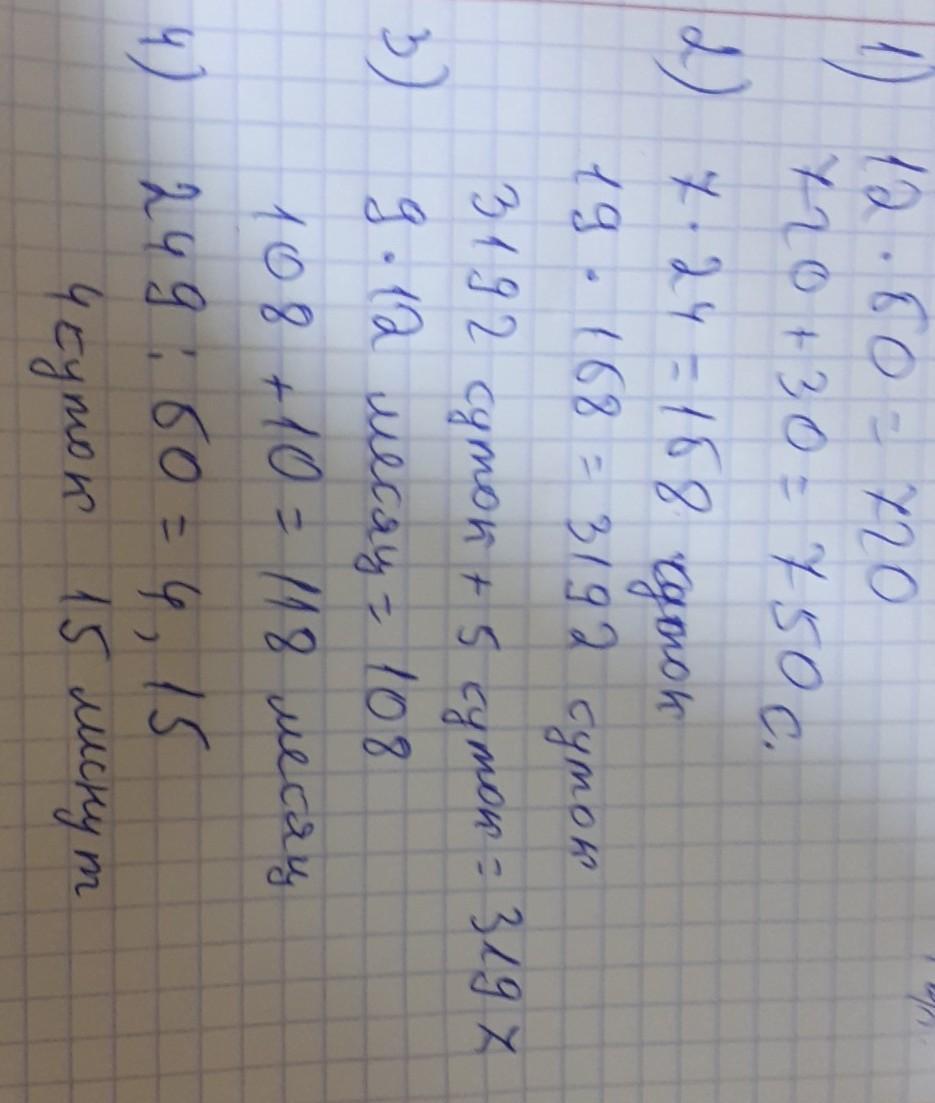 1) 12 · 60 = 720
720 + 30 = 750 с.
2) 7 · 24 = 168 суток
19 · 168 = 3192 суток
3192 суток + 5 суток = 3197
3) 9 · 12 месяц = 108
108 + 10 = 118 месяц
4) 249 : 60 = 4,15
4 суток 15 минут